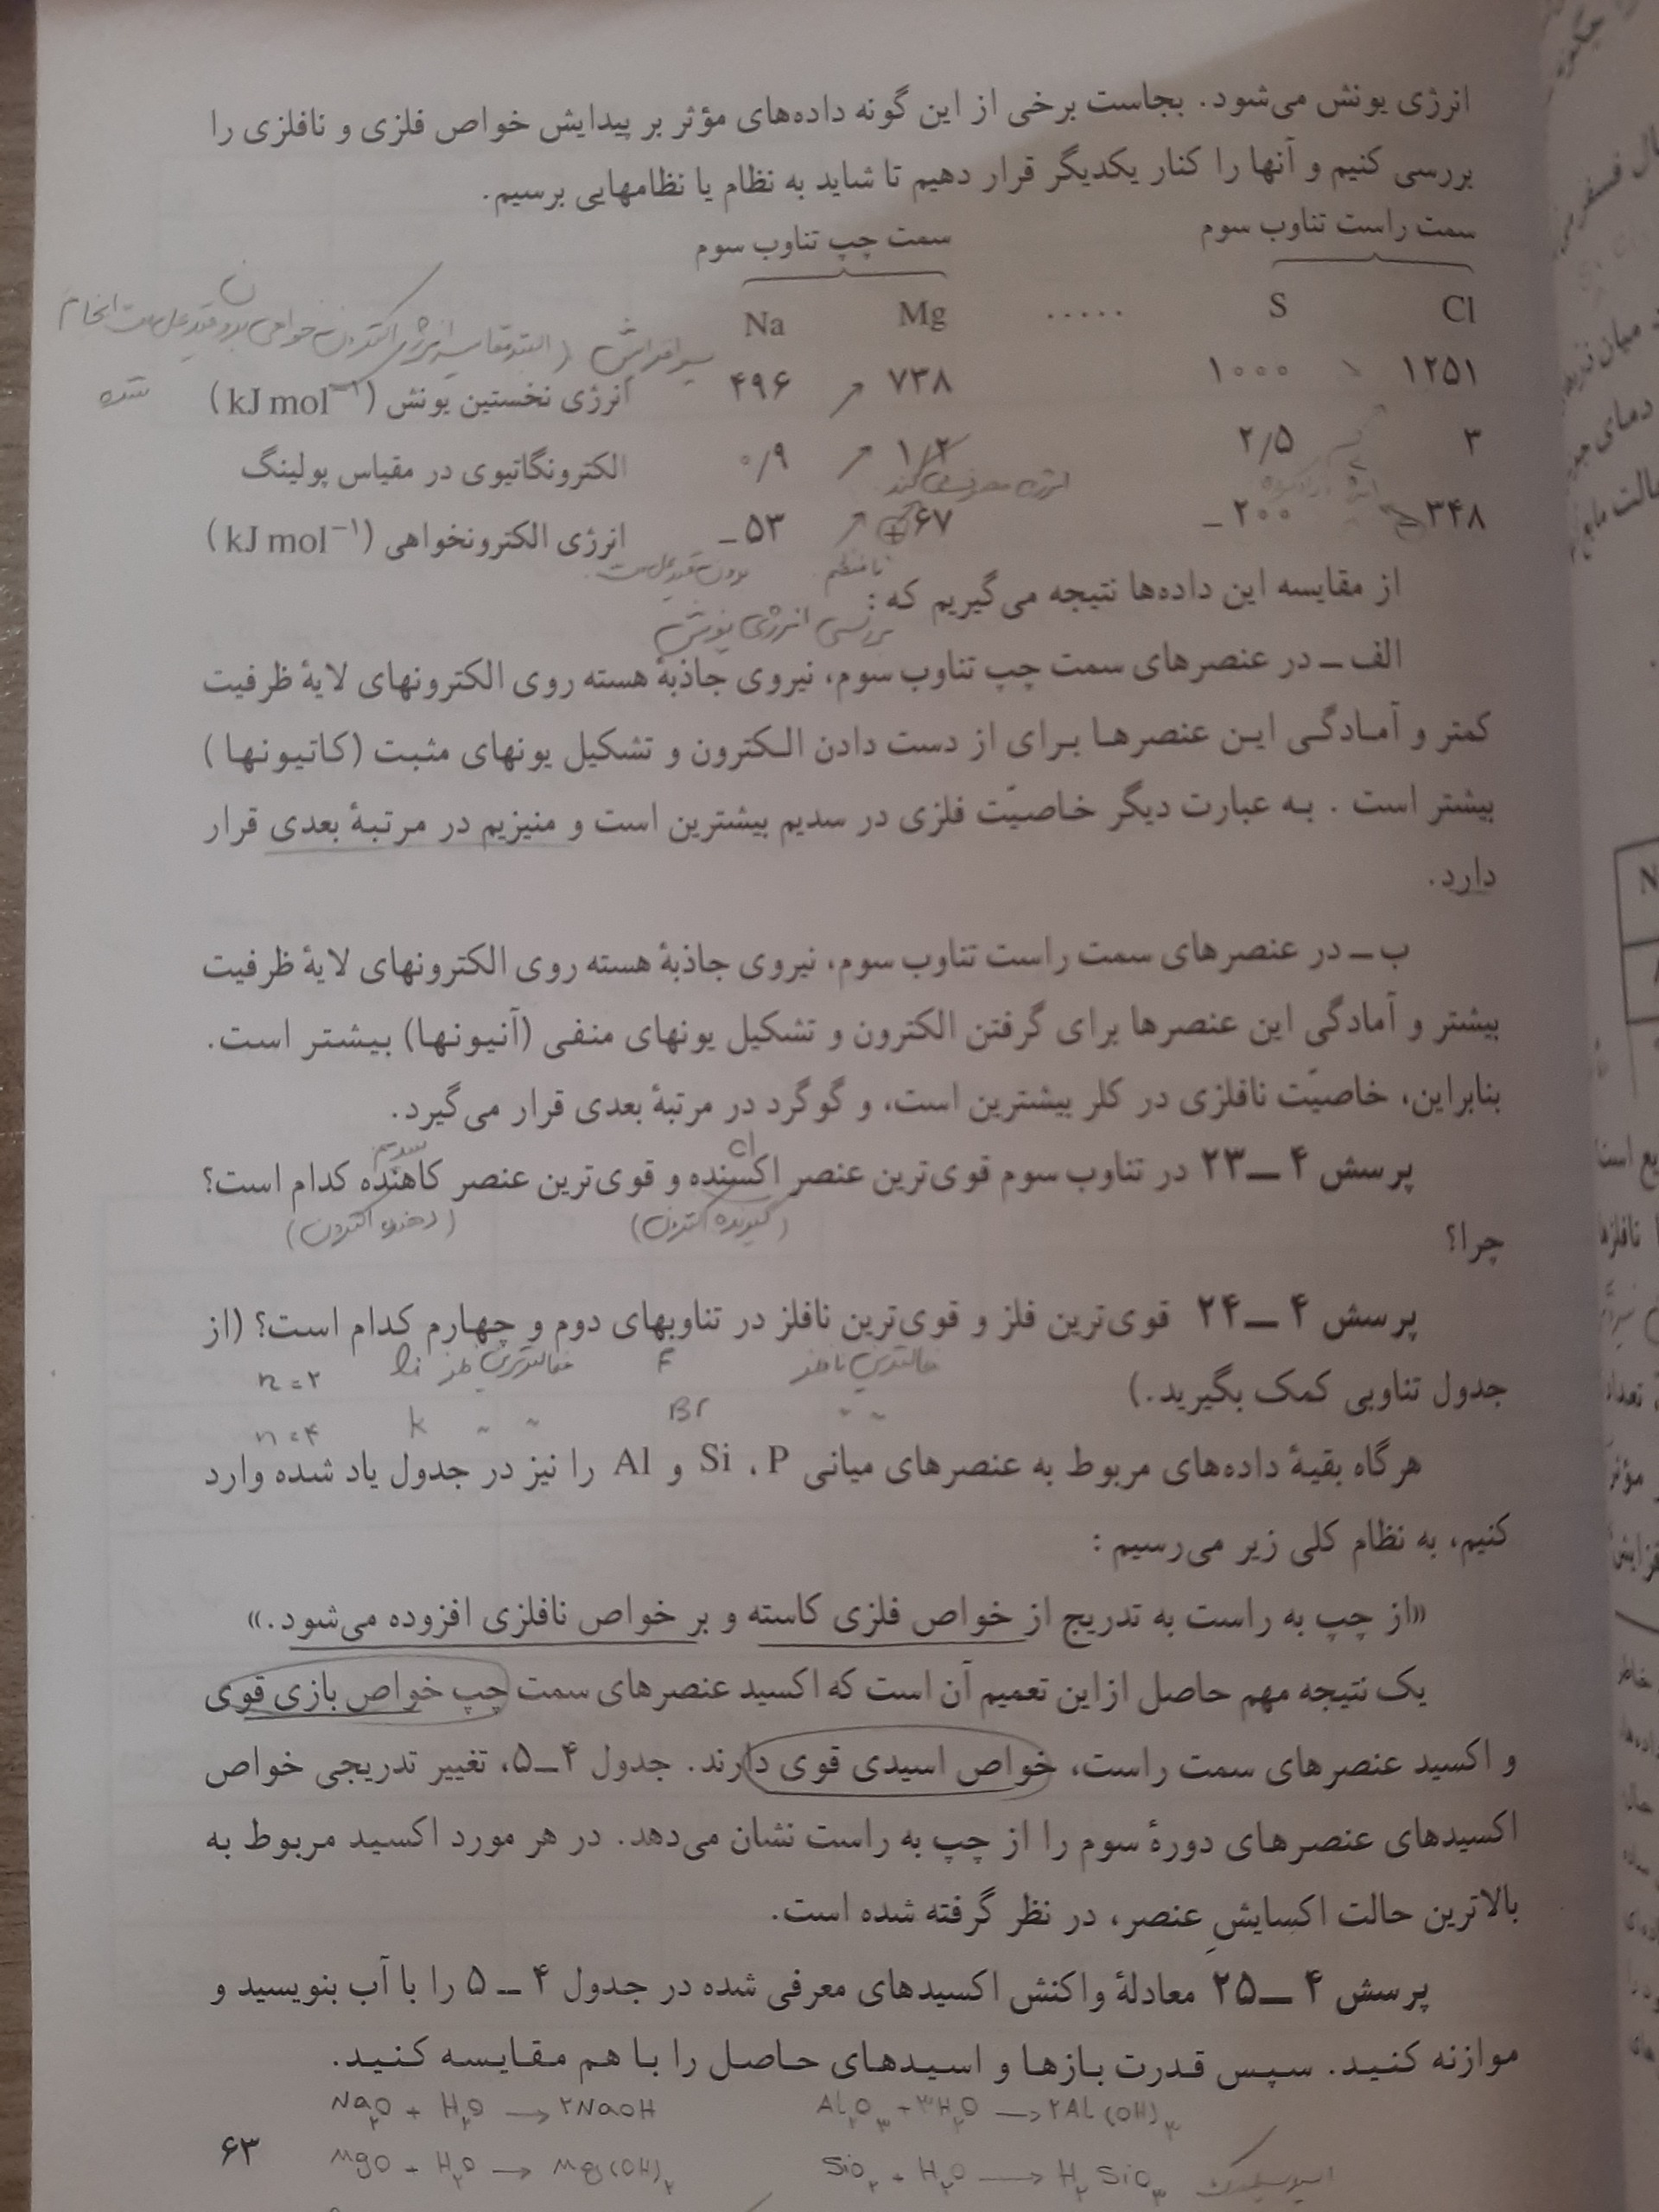 انرژی یونش می‌شود. بجاست برخی از این گونه داده‌های مؤثر بر پیدایش خواص فلزی و نافلزی را
بررسی کنیم و آنها را کنار یکدیگر قرار دهیم تا شاید به نظام یا نظامهایی برسیم.
سمت چپ تناوب سوم سمت راست تناوب سوم
Na Mg ..... S Cl
سیر افزایش
انرژی نخستین یونش (kJ mol⁻¹) ۴۹۶ ۷۳۸ ۱۰۰۰ ۱۲۵۱
الکترونگاتیوی در مقیاس پولینگ ۰/۹ ۱/۲ ۲/۵ ۳
انرژی الکترونخواهی (kJ mol⁻¹) −۵۳ +۶۷ −۲۰۰ −۳۴۸
نامنظم
از مقایسه این داده‌ها نتیجه می‌گیریم که :
بررسی انرژی یونش
الف ــ در عنصرهای سمت چپ تناوب سوم، نیروی جاذبهٔ هسته روی الکترونهای لایهٔ ظرفیت
کمتر و آمادگی این عنصرها برای از دست دادن الکترون و تشکیل یونهای مثبت (کاتیونها)
بیشتر است . به عبارت دیگر خاصیّت فلزی در سدیم بیشترین است و منیزیم در مرتبهٔ بعدی قرار
دارد.
ب ــ در عنصرهای سمت راست تناوب سوم، نیروی جاذبهٔ هسته روی الکترونهای لایهٔ ظرفیت
بیشتر و آمادگی این عنصرها برای گرفتن الکترون و تشکیل یونهای منفی (آنیونها) بیشتر است.
بنابراین، خاصیّت نافلزی در کلر بیشترین است، و گوگرد در مرتبهٔ بعدی قرار می‌گیرد.
Cl سدیم
پرسش ۴ ــ ۲۳ در تناوب سوم قوی‌ترین عنصر اکسنده و قوی‌ترین عنصر کاهنده کدام است؟
(گیرنده الکترون) (دهنده الکترون)
چرا؟
پرسش ۴ ــ ۲۴ قوی‌ترین فلز و قوی‌ترین نافلز در تناوبهای دوم و چهارم کدام است؟ (از
فعالترین نافلز F فعالترین فلز Li n=۲
جدول تناوبی کمک بگیرید.)
〃 〃 Br 〃 〃 K n=۴
هرگاه بقیهٔ داده‌های مربوط به عنصرهای میانی P ، Si و Al را نیز در جدول یاد شده وارد
کنیم، به نظام کلی زیر می‌رسیم :
«از چپ به راست به تدریج از خواص فلزی کاسته و بر خواص نافلزی افزوده می‌شود.»
یک نتیجه مهم حاصل ازاین تعمیم آن است که اکسید عنصرهای سمت چپ خواص بازی قوی
و اکسید عنصرهای سمت راست، خواص اسیدی قوی دارند. جدول ۴ــ۵، تغییر تدریجی خواص
اکسیدهای عنصرهای دورهٔ سوم را از چپ به راست نشان می‌دهد. در هر مورد اکسید مربوط به
بالاترین حالت اکسایشِ عنصر، در نظر گرفته شده است.
پرسش ۴ ــ ۲۵ معادلهٔ واکنش اکسیدهای معرفی شده در جدول ۴ ــ ۵ را با آب بنویسید و
موازنه کنید. سپس قدرت بازها و اسیدهای حاصل را با هم مقایسه کنید.
Na₂O + H₂O → ۲NaOH Al₂O₃ + ۳H₂O → ۲Al(OH)₃
MgO + H₂O → Mg(OH)₂ SiO₂ + H₂O → H₂SiO₃ اسید سیلیسیک
۶۳